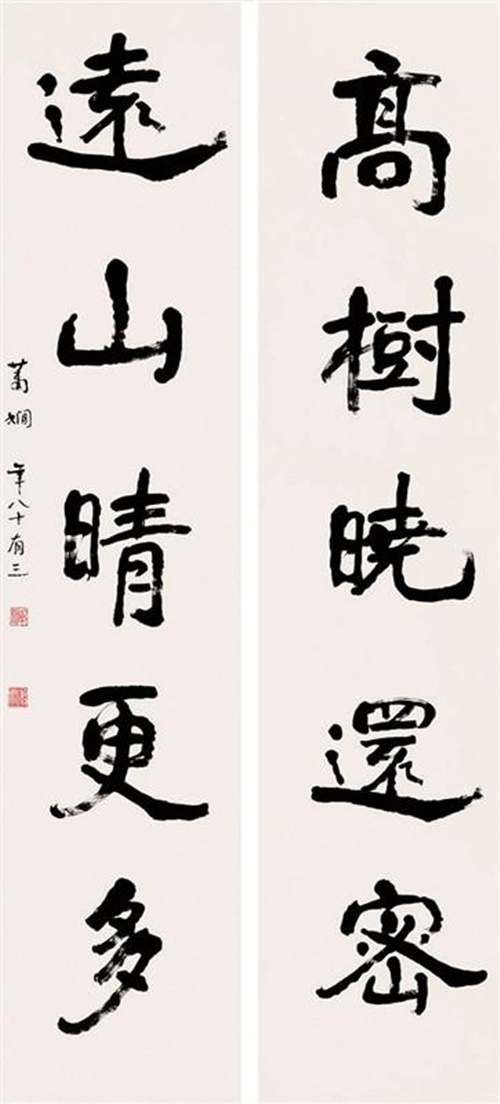 高樹曉還密
遠山晴更多
蕭嫻 年八十有三